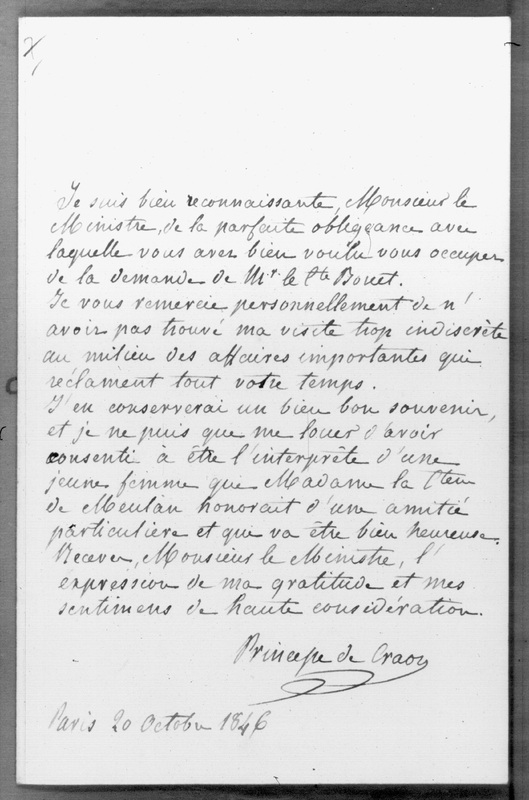 Je suis bien reconnaissante, Monsieur le
Ministre, de la parfaite obligeance avec
laquelle vous avez bien voulu vous occuper
de la demande de Mr. le Cte Bouet.
Je vous remercie personnellement de n'
avoir pas trouvé ma visite trop indiscrète
au milieu des affaires importantes qui
réclament tout votre temps.
J'en conserverai un bien bon souvenir,
et je ne puis que me louer d'avoir
consenti à être l'interprète d'une
jeune femme que Madame la Ctesse
de Meulan honorait d'une amitié
particulière et qui va être bien heureuse.
Recevez, Monsieur le Ministre, l'
expression de ma gratitude et mes
sentimens de haute considération.
Princesse de Craon
Paris 20 Octobre 1846